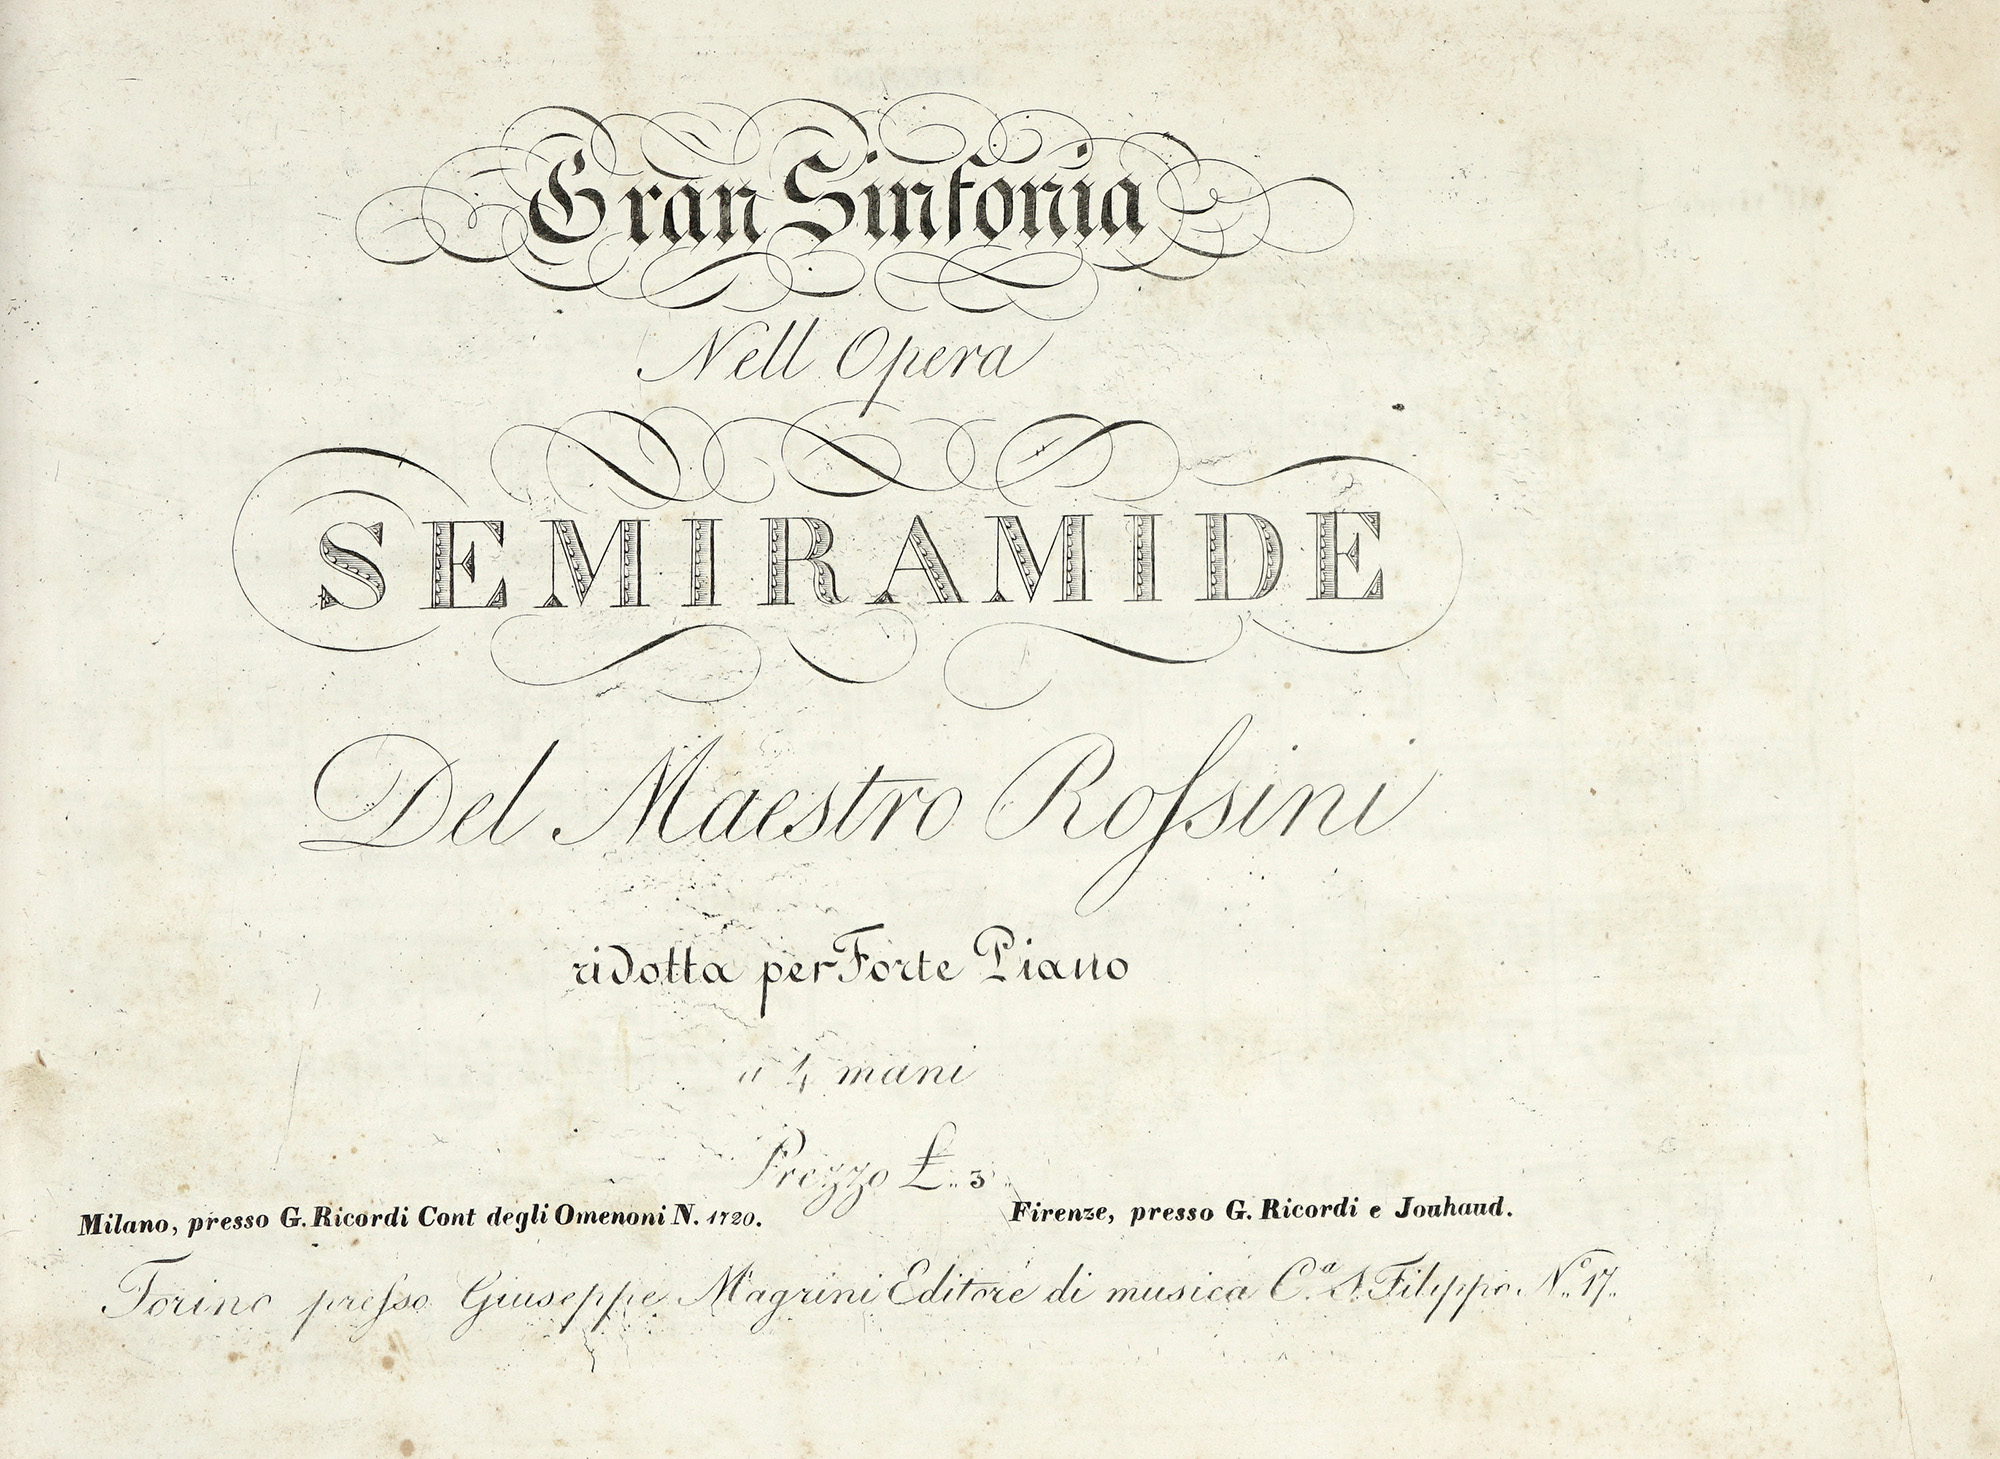 Gran Sinfonia
Nell Opera
SEMIRAMIDE
Del Maestro Roſsini
ridotta per Forte Piano
a 4 mani
Prezzo £.. 3
Milano, presso G. Ricordi Cont degli Omenoni N. 1720. Firenze, presso G. Ricordi e Jouhaud.
Torino preſso Giuseppe Magrini Editore di musica C.ª S. Filippo N.º 17..